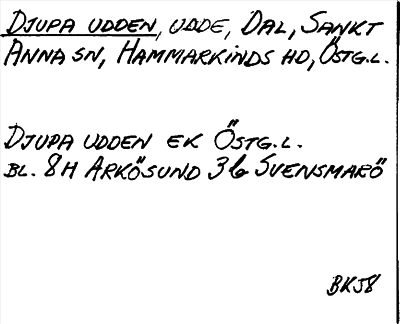 DJUPA UDDEN, UDDE, DAL, SANKT
ANNA SN, HAMMARKINDS HD, ÖSTG.L.
DJUPA UDDEN EK ÖSTG.L.
BL. 8H ARKÖSUND 3b SVENSMARÖ
BKJ8